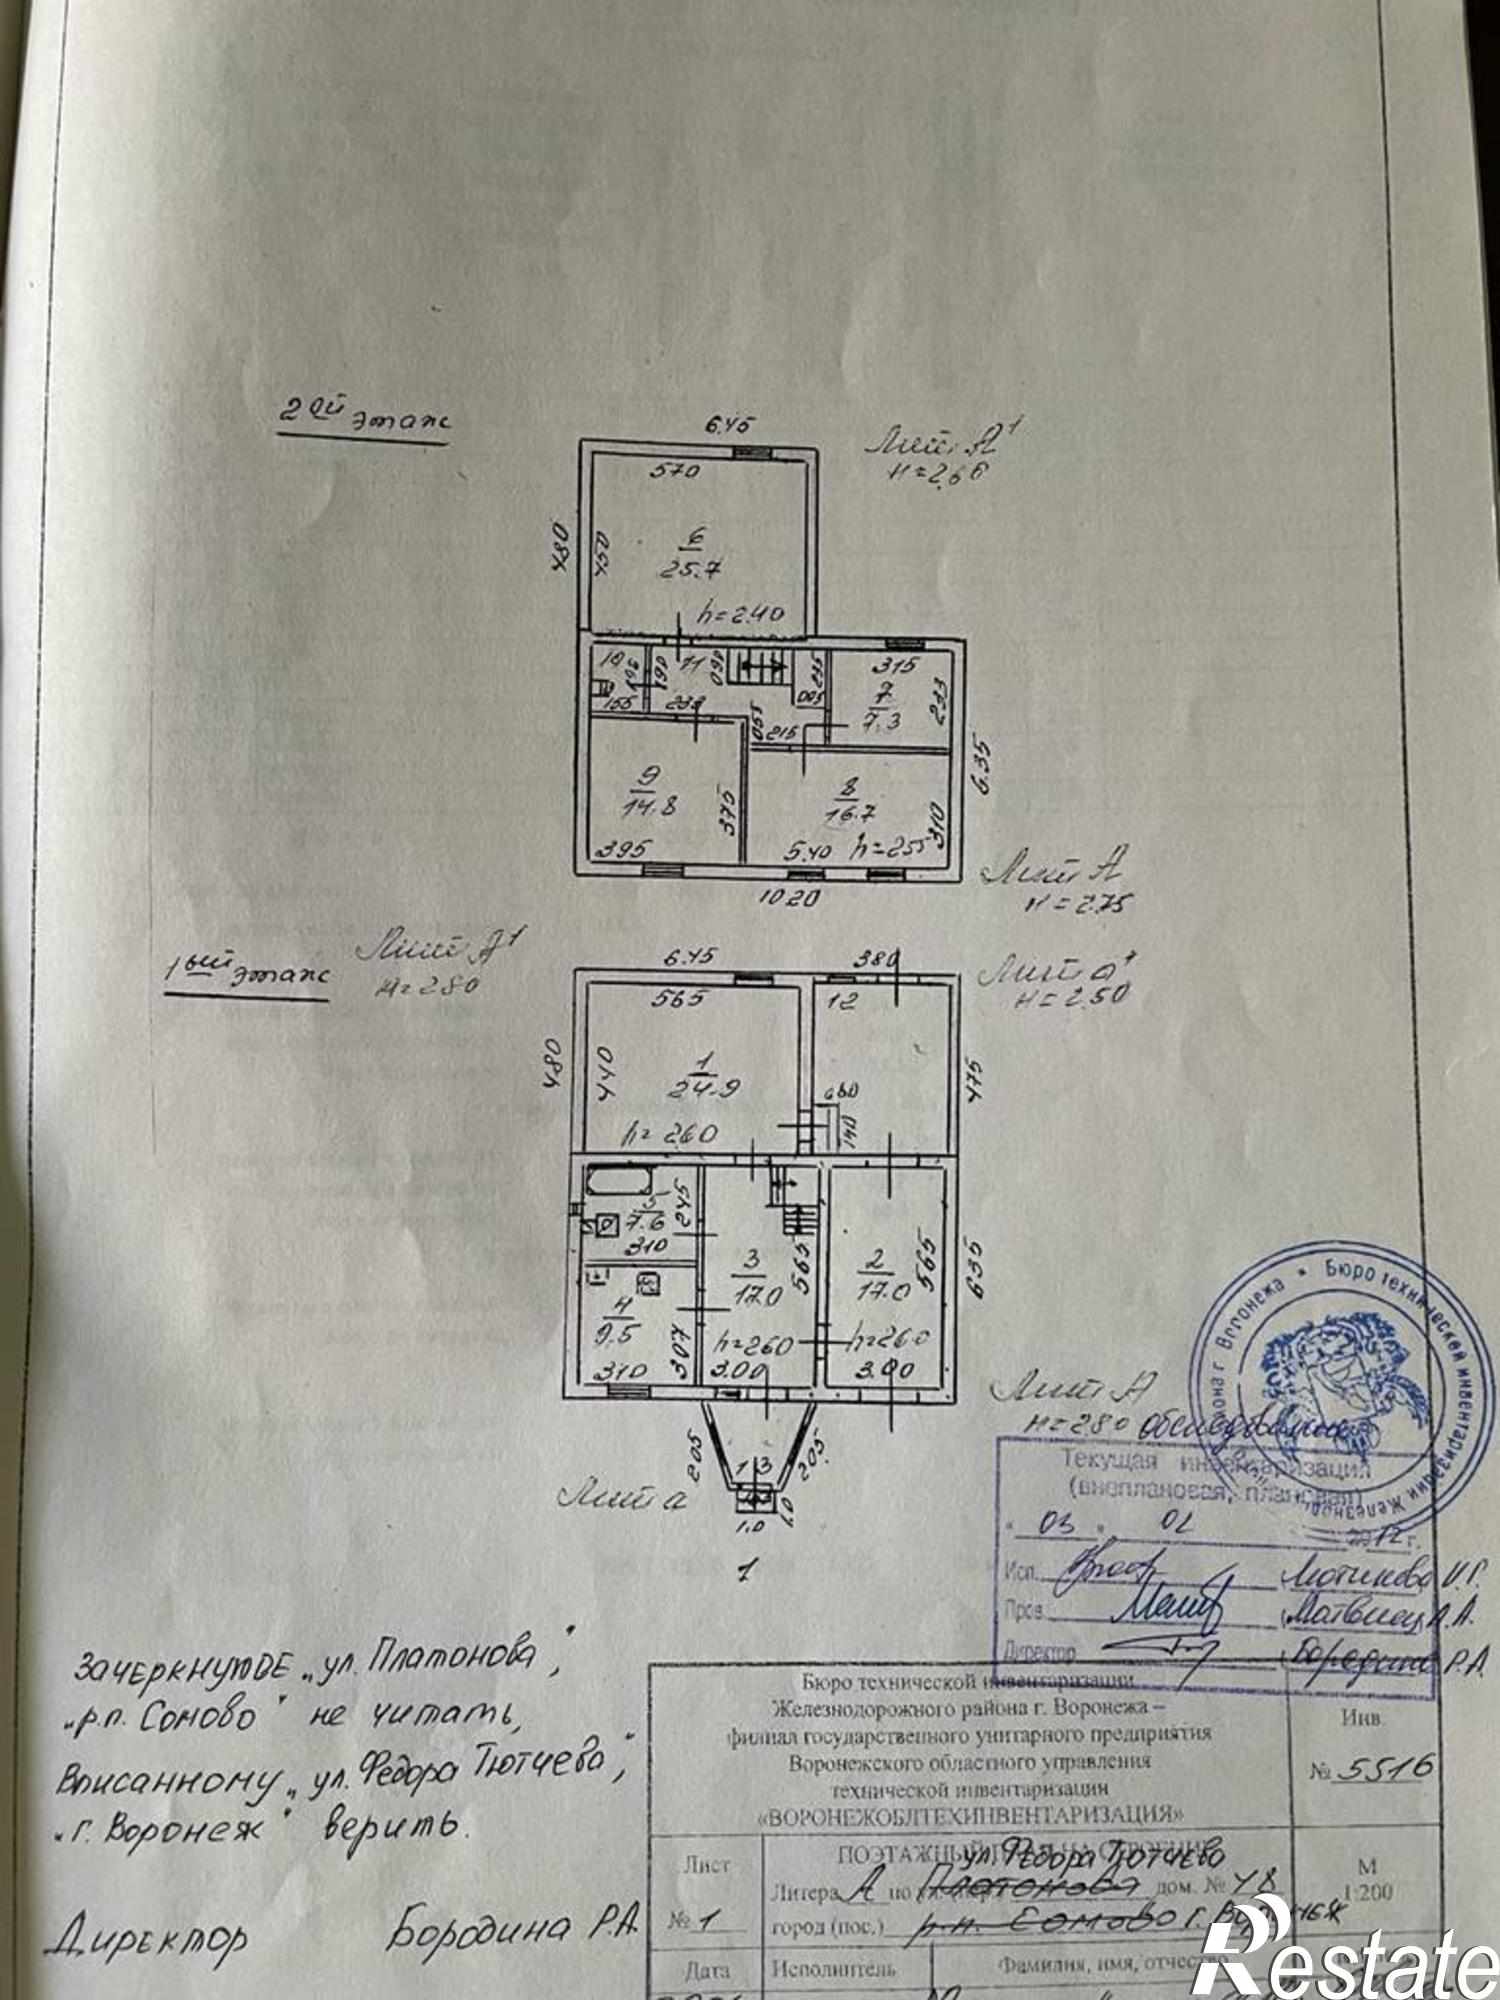 2ой этаж
6.45
Лит А1
Н=2.66
570
480
450
6
25.7
h=2.40
10
11
195
190
060
235
315
7
7.3
233
155
233
215
6.35
9
14.8
375
395
8
16.7
310
5.40
h=255
10.20
Лит А
Н=2.75
1ый этаж
Лит А1
Н=280
6.45
380
Лит а1
Н=2.50
565
12
480
440
1
24.9
475
060
140
h=260
5
7.6
245
310
3
17.0
565
2
17.0
565
635
4
9.5
307
310
h=260
3.00
h=260
3.00
Лит А
Н=280
обследование
205
13
205
Лит а
1.0
1
Бюро технической инвентаризации Железнодорожного района г. Воронежа
Текущая инвентаризация
(внеплановая, плановая)
" 03 " 02 2012 г.
Исп.
Пров.
Директор Бородина Р.А.
Зачеркнутое „ул. Платонова",
„р.п. Сомово" не читать,
Вписанному „ул. Федора Тютчева",
„г. Воронеж" верить.
Директор Бородина Р.А.
Бюро технической инвентаризации
Железнодорожного района г. Воронежа –
филиал государственного унитарного предприятия
Воронежского областного управления
технической инвентаризации
«ВОРОНЕЖОБЛТЕХИНВЕНТАРИЗАЦИЯ»
Инв.
№ 5516
Лист
№ 1
ПОЭТАЖНЫЙ ПЛАН НА СТРОЕНИЕ
ул. Федора Тютчева
Литера А по Платонова дом. № 48
город (пос.) р.п. Сомово г. Воронеж
М
1:200
Дата
Исполнитель
Фамилия, имя, отчество
Restate